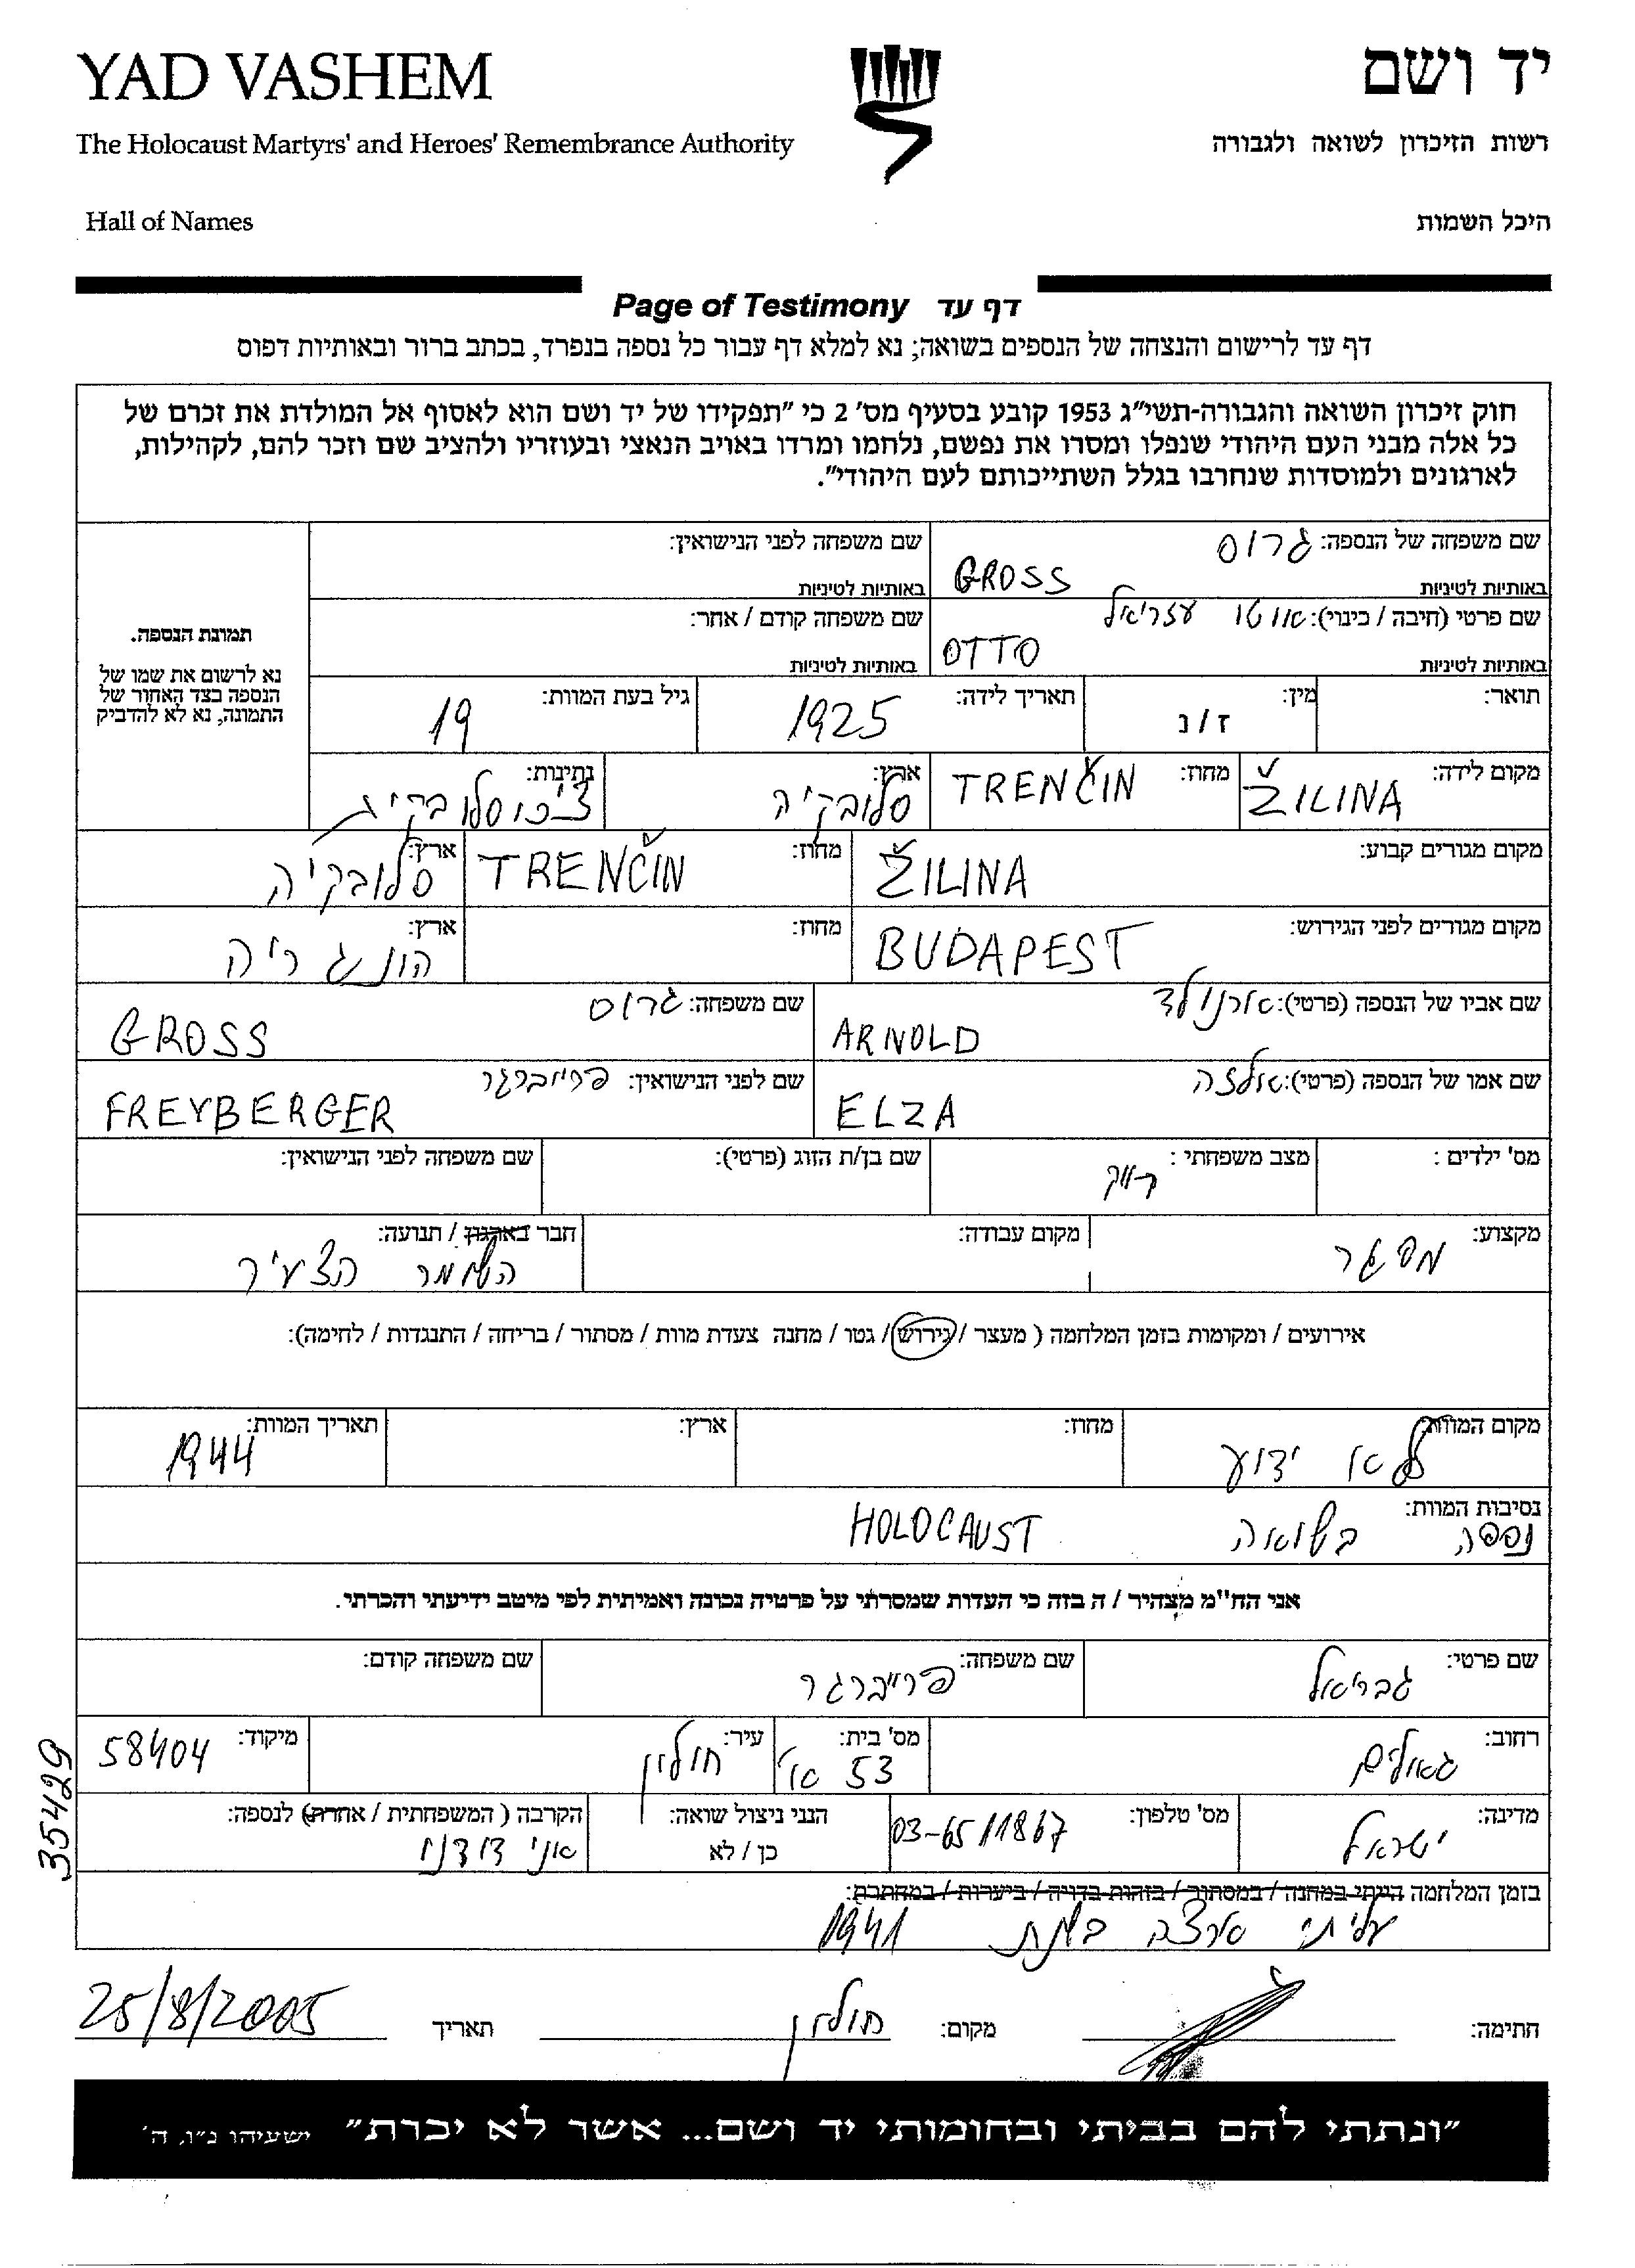 YAD VASHEM
יד ושם
The Holocaust Martyrs' and Heroes' Remembrance Authority
רשות הזיכרון לשואה ולגבורה
Hall of Names
היכל השמות
Page of Testimony דף עד
דף עד לרישום והנצחה של הנספים בשואה; נא למלא דף עבור כל נספה בנפרד, בכתב ברור ובאותיות דפוס
חוק זיכרון השואה והגבורה-תשי"ג 1953 קובע בסעיף מס' 2 כי "תפקידו של יד ושם הוא לאסוף אל המולדת את זכרם של
כל אלה מבני העם היהודי שנפלו ומסרו את נפשם, נלחמו ומרדו באויב הנאצי ובעוזריו ולהציב שם וזכר להם, לקהילות,
לארגונים ולמוסדות שנחרבו בגלל השתייכותם לעם היהודי".
שם משפחה של הנספה: גרוס
באותיות לטיניות GROSS
שם משפחה לפני הנישואין:
באותיות לטיניות
שם פרטי (חיבה / כינוי): אוטו עזריאל
באותיות לטיניות OTTO
שם משפחה קודם / אחר:
באותיות לטיניות
תמונת הנספה.
נא לרשום את שמו של
הנספה בצד האחור של
התמונה, נא לא להדביק
תואר:
מין: ז / נ
תאריך לידה: 1925
גיל בעת המוות: 19
מקום לידה: ŽILINA
מחוז: TRENČIN
ארץ: סלובקיה
נתינות: צ'כוסלובקית
מקום מגורים קבוע: ŽILINA
מחוז: TRENČIN
ארץ: סלובקיה
מקום מגורים לפני הגירוש: BUDAPEST
מחוז:
ארץ: הונגריה
שם אביו של הנספה (פרטי): ארנולד ARNOLD
שם משפחה: גרוס GROSS
שם אמו של הנספה (פרטי): אלזה ELZA
שם לפני הנישואין: פרייברגר FREYBERGER
מס' ילדים :
מצב משפחתי : רווק
שם בן/ת הזוג (פרטי):
שם משפחה לפני הנישואין:
מקצוע: מסגר
מקום עבודה:
חבר בארגון / תנועה: השומר הצעיר
אירועים / ומקומות בזמן המלחמה ( מעצר / גירוש / גטו / מחנה צעדת מוות / מסתור / בריחה / התנגדות / לחימה):
מקום המוות: לא ידוע
מחוז:
ארץ:
תאריך המוות: 1944
נסיבות המוות:
נספה בשואה HOLOCAUST
אני הח"מ מצהיר / ה בזה כי העדות שמסרתי על פרטיה נכונה ואמיתית לפי מיטב ידיעתי והכרתי.
שם פרטי: גבריאל
שם משפחה: פרייברגר
שם משפחה קודם:
רחוב: גאולים
מס' בית: 53 א'
עיר: חולון
מיקוד: 58404
מדינה: ישראל
מס' טלפון: 03-6511867
הנני ניצול שואה:
כן / לא
הקרבה ( המשפחתית / אחרת) לנספה:
אני דודנו
בזמן המלחמה הייתי במחנה / במסתור / בזהות בדויה / ביערות / במחתרת:
עליתי ארצה בשנת 1941
חתימה:
מקום: חולון
תאריך 25/8/2005
"ונתתי להם בביתי ובחומותי יד ושם... אשר לא יכרת" ישעיהו נ"ו, ה'
355429